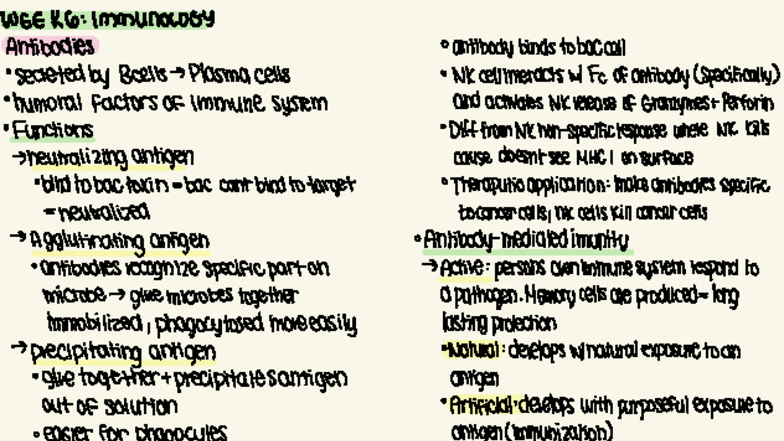 WEEK 6: Immunology
Antibodies
• secreted by Bcells → Plasma cells
• humoral factors of immune system
• Functions
→ neutralizing antigen
• bind to bac toxin = bac cant bind to target
= neutralized
→ Agglutinating antigen
• antibodies recognize specific part on
microbe → glue microbes together
immobilized, phagocytosed more easily
→ precipitating antigen
• glue together + precipitates antigen
out of solution
• easier for phagocytes
• antibody binds to bac cell
• NK cell interacts w/ Fc of antibody (specifically)
and activates NK release of Granzymes + Perforin
• Diff from NK non-specific response where NK kills
cause doesnt see MHC I on surface
• Therapeutic application: make antibodies specific
to cancer cells, NK cells kill cancer cells
• Antibody-mediated imunity
→ Active: persons own immune system respond to
a pathogen. Memory cells are produced = long
lasting protection
• Natural: develops w/ natural exposure to an
antigen
• Artificial: develops with purposeful exposure to
antigen (immunization)